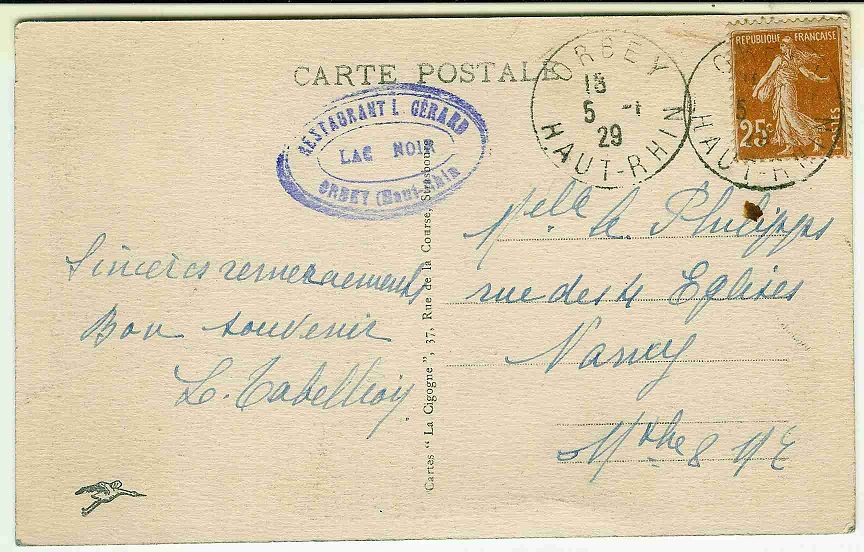 CARTE POSTALE
RESTAURANT L. GÉRARD
LAC NOIR
ORBEY (Haut-Rhin
ORBEY
15
5 -1
29
HAUT-RHIN
REPUBLIQUE FRANÇAISE
25c
POSTES
HAUT-RHIN
Sincères remerciements
Bon souvenir
L.
Cartes "La Cigogne", 37, Rue de la Course, Strasbourg
Melle Philipps
rue des 4 Eglises
Nancy
Mthe & Mle